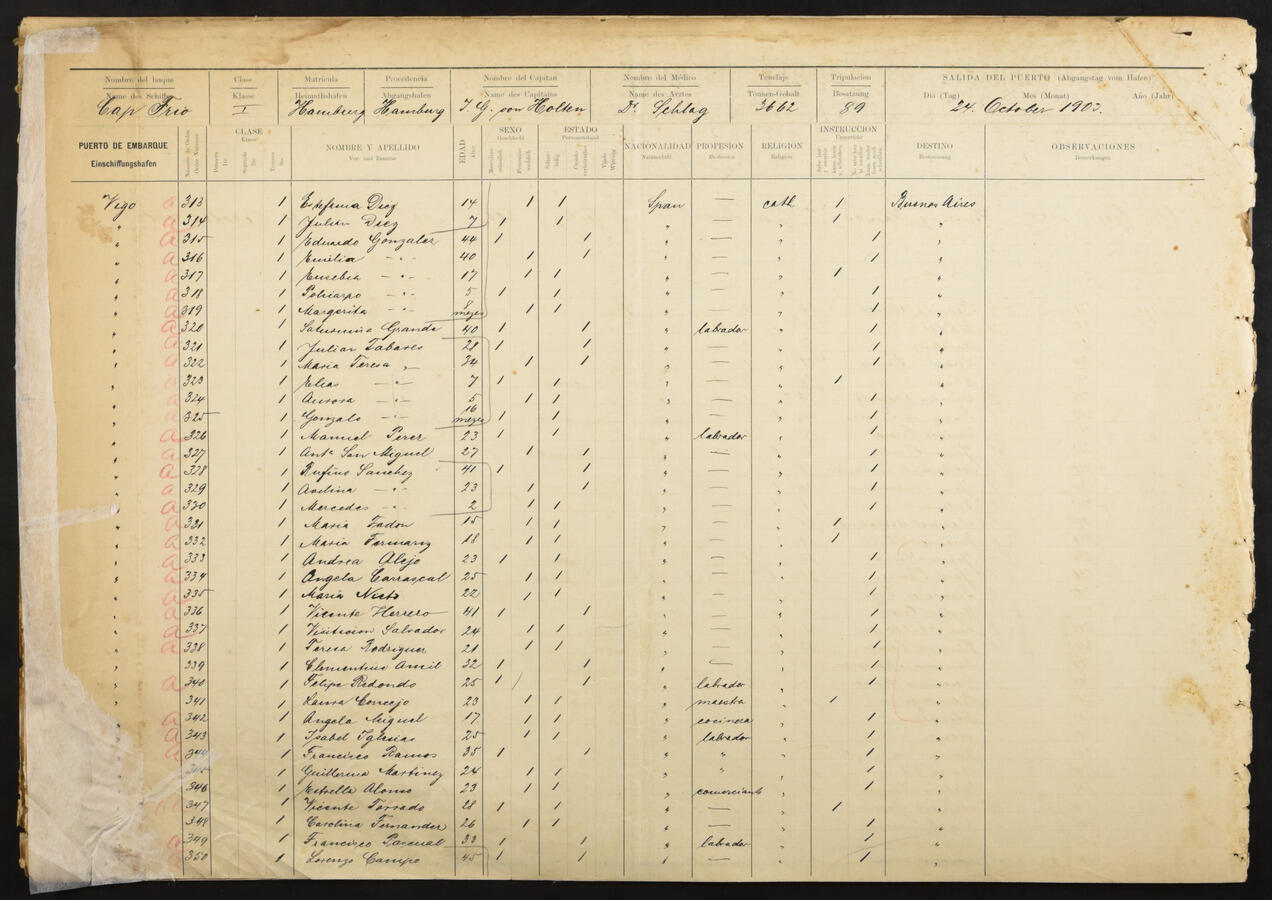 Nombre del buque Clase Matricula Procedencia Nombre del Capitan Nombre del Médico Tonelaje Tripulacion SALIDA DEL PUERTO (Abgangstag vom Hafen)
Name des Schiffes Klasse Heimathshafen Abgangshafen Name des Capitains Name des Arztes Tonnen-Gehalt Besatzung Dia (Tag) Mei (Monat) Año (Jahr)
Cap Frio I Hamburg Hamburg J. G. von Holten Dr. Schlag 3662 89 24. October 1903.
PUERTO DE EMBARQUE CLASE NOMBRE Y APELLIDO EDAD SEXO ESTADO NACIONALIDAD PROFESION RELIGION INSTRUCCION DESTINO OBSERVACIONES
Einschiffungshafen Klasse Vor- und Zuname Alter Geschlecht Personenstand Nationalität Profession Religion Unterricht Bestimmung Bemerkungen
Vigo a 313 1 Estefania Diez 14 1 1 Span — cath 1 Buenos Aires
" a 314 1 Julian Diez 7 1 1 " — " 1 "
" a 315 1 Eduardo Gonzalez 44 1 1 " — " 1 "
" a 316 1 Emilia — " — 40 1 1 " — " 1 "
" a 317 1 Eusebia — " — 17 1 1 " — " 1 "
" a 318 1 Policarpo — " — 5 1 1 " — " 1 "
" a 319 1 Margarita — " — 8 mezes 1 1 " — " 1 "
" a 320 1 Saturnino Grande 40 1 1 " labrador " 1 "
" a 321 1 Julian Tabares 28 1 1 " — " 1 "
" a 322 1 Maria Teresa " 34 1 1 " — " 1 "
" a 323 1 Elias — " — 7 1 1 " — " 1 "
" a 324 1 Aurora — " — 5 1 1 " — " 1 "
" a 325 1 Gonzalo — " — 16 mezes 1 1 " — " 1 "
" a 326 1 Manuel Perez 23 1 1 " labrador " 1 "
" a 327 1 Anta San Miguel 27 1 1 " — " 1 "
" a 328 1 Rufino Sanchez 41 1 1 " — " 1 "
" a 329 1 Avelina — " — 23 1 1 " — " 1 "
" a 330 1 Mercedes — " — 2 1 1 " — " 1 "
" a 331 1 Maria Fadon 15 1 1 " — " 1 "
" a 332 1 Maria 18 1 1 " — " 1 "
" a 333 1 Andrea Alejo 23 1 1 " — " 1 "
" a 334 1 Angela Carrascal 25 1 1 " — " 1 "
" a 335 1 Maria Nieto 22 1 1 " — " 1 "
" a 336 1 Vicente Herrero 41 1 1 " — " 1 "
" a 337 1 Visitacion Salvador 24 1 1 " — " 1 "
" a 338 1 Teresa Rodriguez 21 1 1 " — " 1 "
" 339 1 Clementino Amil 32 1 1 " — " 1 "
" a 340 1 Felipe Redondo 25 1 1 " labrador " 1 "
" 341 1 Laura Concejo 23 1 1 " maestra " 1 "
" a 342 1 Angela Miguel 17 1 1 " cocinera " 1 "
" a 343 1 Isabel Iglesias 25 1 1 " labrador " 1 "
" a 344 1 Francisco Ramos 35 1 1 " " " 1 "
" 345 1 Guillerma Martinez 24 1 1 " " " 1 "
" 346 1 Estrella Alonso 23 1 1 " comerciante " 1 "
" 347 1 Vicente Torrado 28 1 1 " — " 1 "
" 348 1 Carolina Fernandez 26 1 1 " — " 1 "
" a 349 1 Francisco Pascual 33 1 1 " labrador " 1 "
" a 350 1 Lorenzo Campo 45 1 1 " — " 1 "